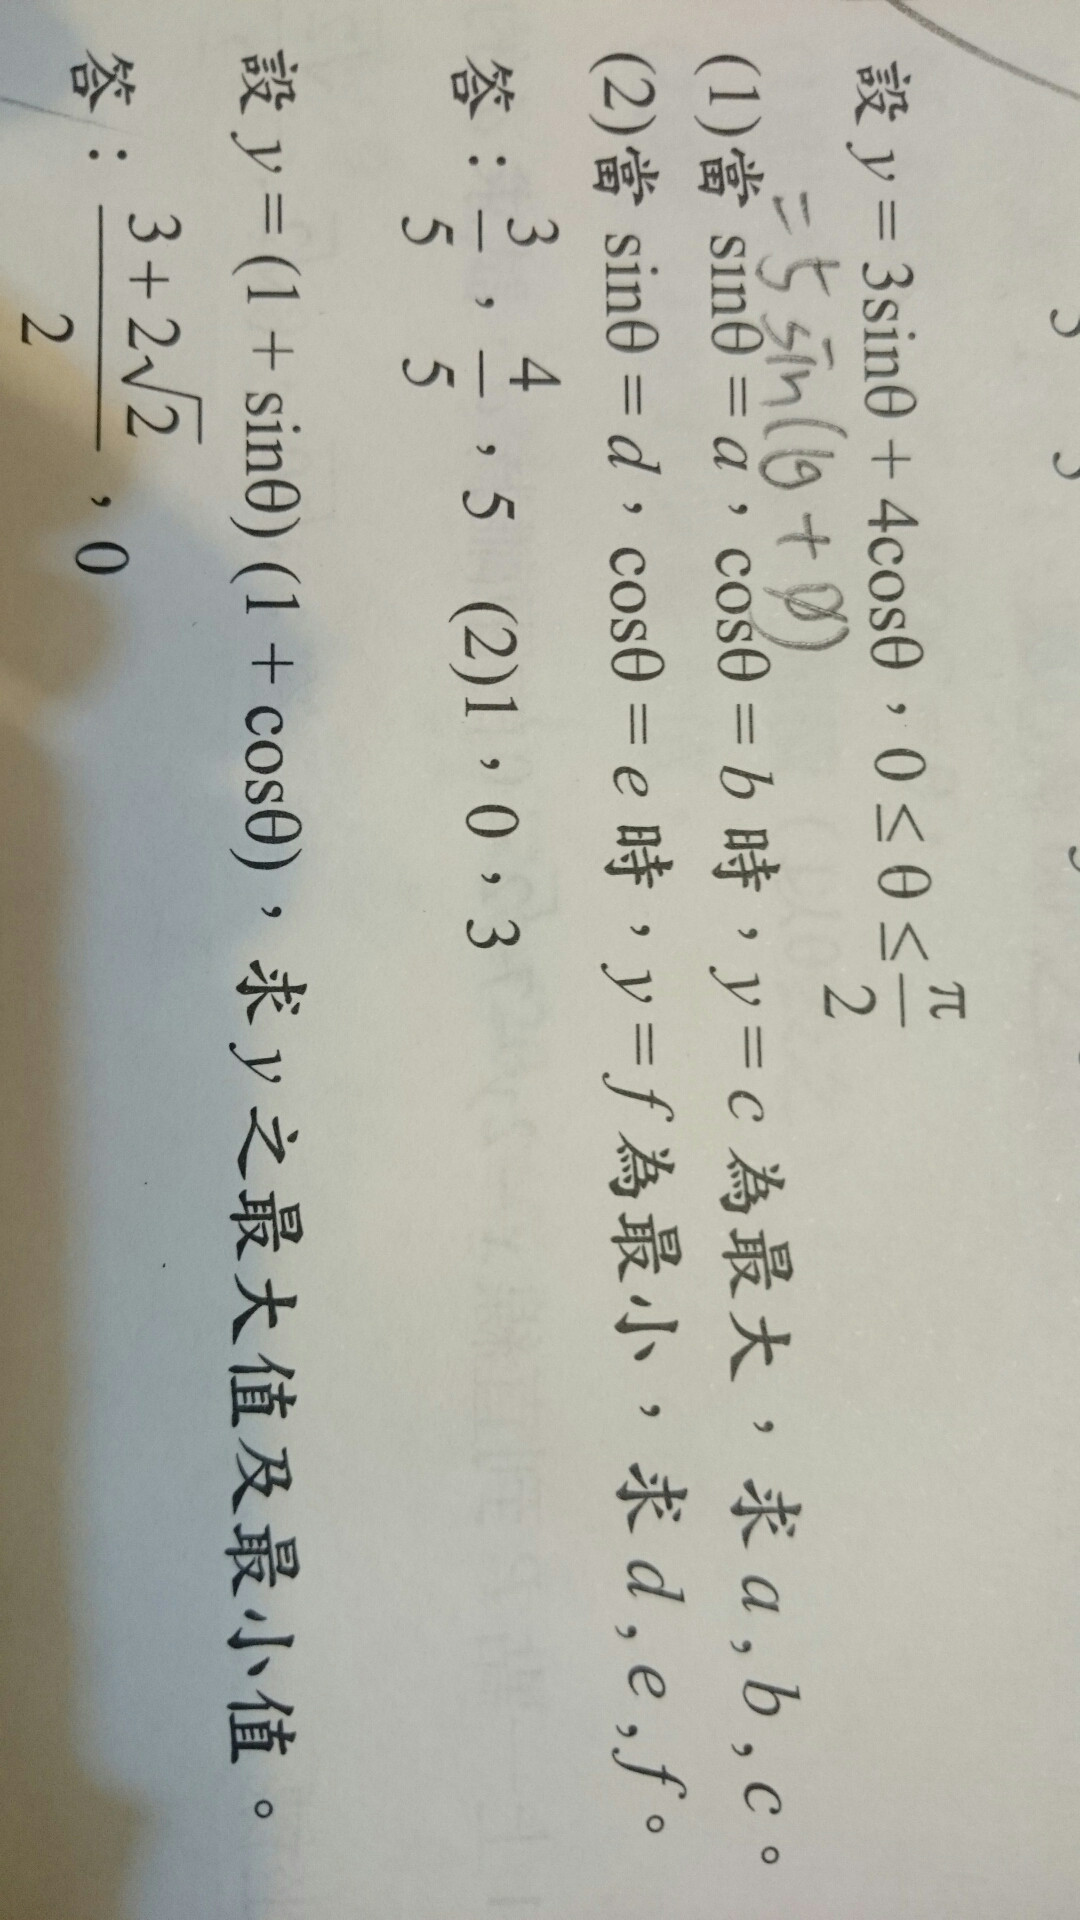 設 y = 3sinθ + 4cosθ，0 ≤ θ ≤ π/2
= 5 sin(θ + ø)
(1)當 sinθ = a，cosθ = b 時，y = c 為最大，求 a，b，c。
(2)當 sinθ = d，cosθ = e 時，y = f 為最小，求 d，e，f。
答：3/5，4/5，5 (2)1，0，3
設 y = (1 + sinθ) (1 + cosθ)，求 y 之最大值及最小值。
答：(3 + 2√2)/2，0